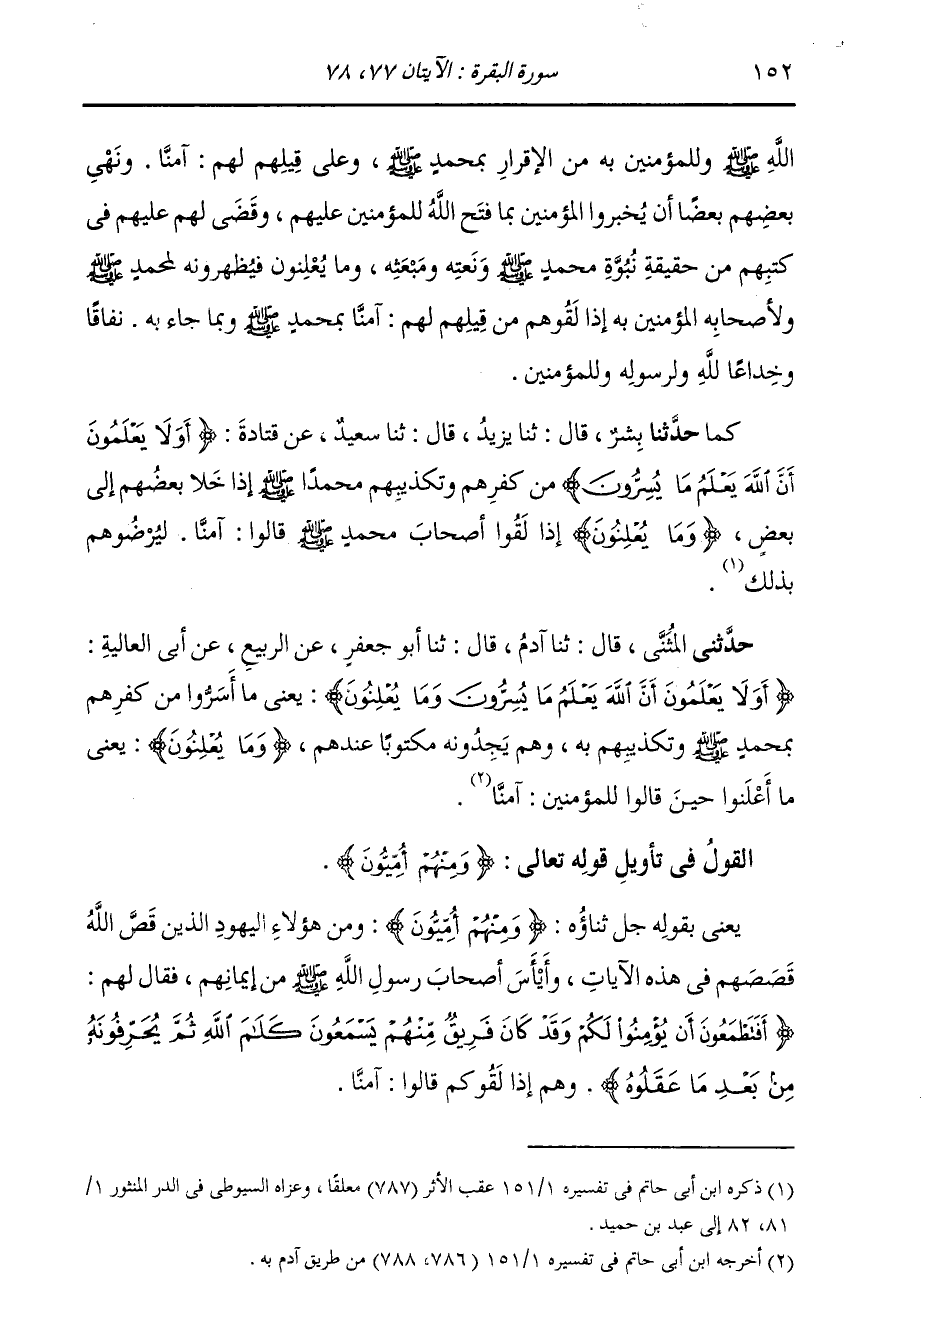 ١٥٢ سورة البقرة : الآيتان ٧٧، ٧٨
اللَّهِ ﷺ وللمؤمنين به من الإقرارِ بمحمدٍ ﷺ ، وعلى قِيلِهم لهم : آمنَّا . ونَهْىِ
بعضِهم بعضًا أن يُخبروا المؤمنين بما فتَح اللَّهُ للمؤمنين عليهم ، وقَضَى لهم عليهم فى
كتبِهم من حقيقةِ نُبُوَّةِ محمدٍ ﷺ ونَعتِه ومَبْعَثِه ، وما يُعْلِنون فيُظهرونه لمحمدٍ ﷺ
ولأصحابِه المؤمنين به إذا لَقُوهم من قِيلِهم لهم : آمنَّا بمحمدٍ ﷺ وبما جاء به . نفاقًا
وخِداعًا للَّهِ ولرسولِه وللمؤمنين .
كما حدَّثنا بِشرٌ ، قال : ثنا يزيدُ ، قال : ثنا سعيدٌ ، عن قتادةَ : ﴿ أَوَلَا يَعْلَمُونَ
أَنَّ ٱللَّهَ يَعْلَمُ مَا يُسِرُّونَ ﴾ من كفرِهم وتكذيبِهم محمدًا ﷺ إذا خَلا بعضُهم إلى
بعضٍ ، ﴿ وَمَا يُعْلِنُونَ ﴾ إذا لَقُوا أصحابَ محمدٍ ﷺ قالوا : آمنَّا . ليُرْضُوهم
بذلك (١) .
حدَّثنى المثُنَّى ، قال : ثنا آدمُ ، قال : ثنا أبو جعفرٍ ، عن الربيعِ ، عن أبى العاليةِ :
﴿ أَوَلَا يَعْلَمُونَ أَنَّ ٱللَّهَ يَعْلَمُ مَا يُسِرُّونَ وَمَا يُعْلِنُونَ ﴾ : يعنى ما أسَرُّوا من كفرِهم
بمحمدٍ ﷺ وتكذيبِهم به ، وهم يَجِدُونه مكتوبًا عندهم ، ﴿ وَمَا يُعْلِنُونَ ﴾ : يعنى
ما أَعْلَنوا حينَ قالوا للمؤمنين : آمنَّا (٢) .
القولُ فى تأويلِ قوله تعالى : ﴿ وَمِنْهُمْ أُمِّيُّونَ ﴾ .
يعنى بقولِه جل ثناؤُه : ﴿ وَمِنْهُمْ أُمِّيُّونَ ﴾ : ومن هؤلاءِ اليهودِ الذين قَصَّ اللَّهُ
قَصَصَهم فى هذه الآياتِ ، وأَيْأَسَ أصحابَ رسولِ اللَّهِ ﷺ من إيمانِهم ، فقال لهم :
﴿ أَفَتَطْمَعُونَ أَن يُؤْمِنُوا۟ لَكُمْ وَقَدْ كَانَ فَرِيقٌ مِّنْهُمْ يَسْمَعُونَ كَلَـٰمَ ٱللَّهِ ثُمَّ يُحَرِّفُونَهُۥ
مِنۢ بَعْدِ مَا عَقَلُوهُ ﴾ . وهم إذا لَقُوكم قالوا : آمنَّا .
(١) ذكره ابن أبى حاتم فى تفسيره ١/ ١٥١ عقب الأثر (٧٨٧) معلقًا ، وعزاه السيوطى فى الدر المنثور ١/
٨١، ٨٢ إلى عبد بن حميد .
(٢) أخرجه ابن أبى حاتم فى تفسيره ١/ ١٥١ (٧٨٦، ٧٨٨) من طريق آدم به .